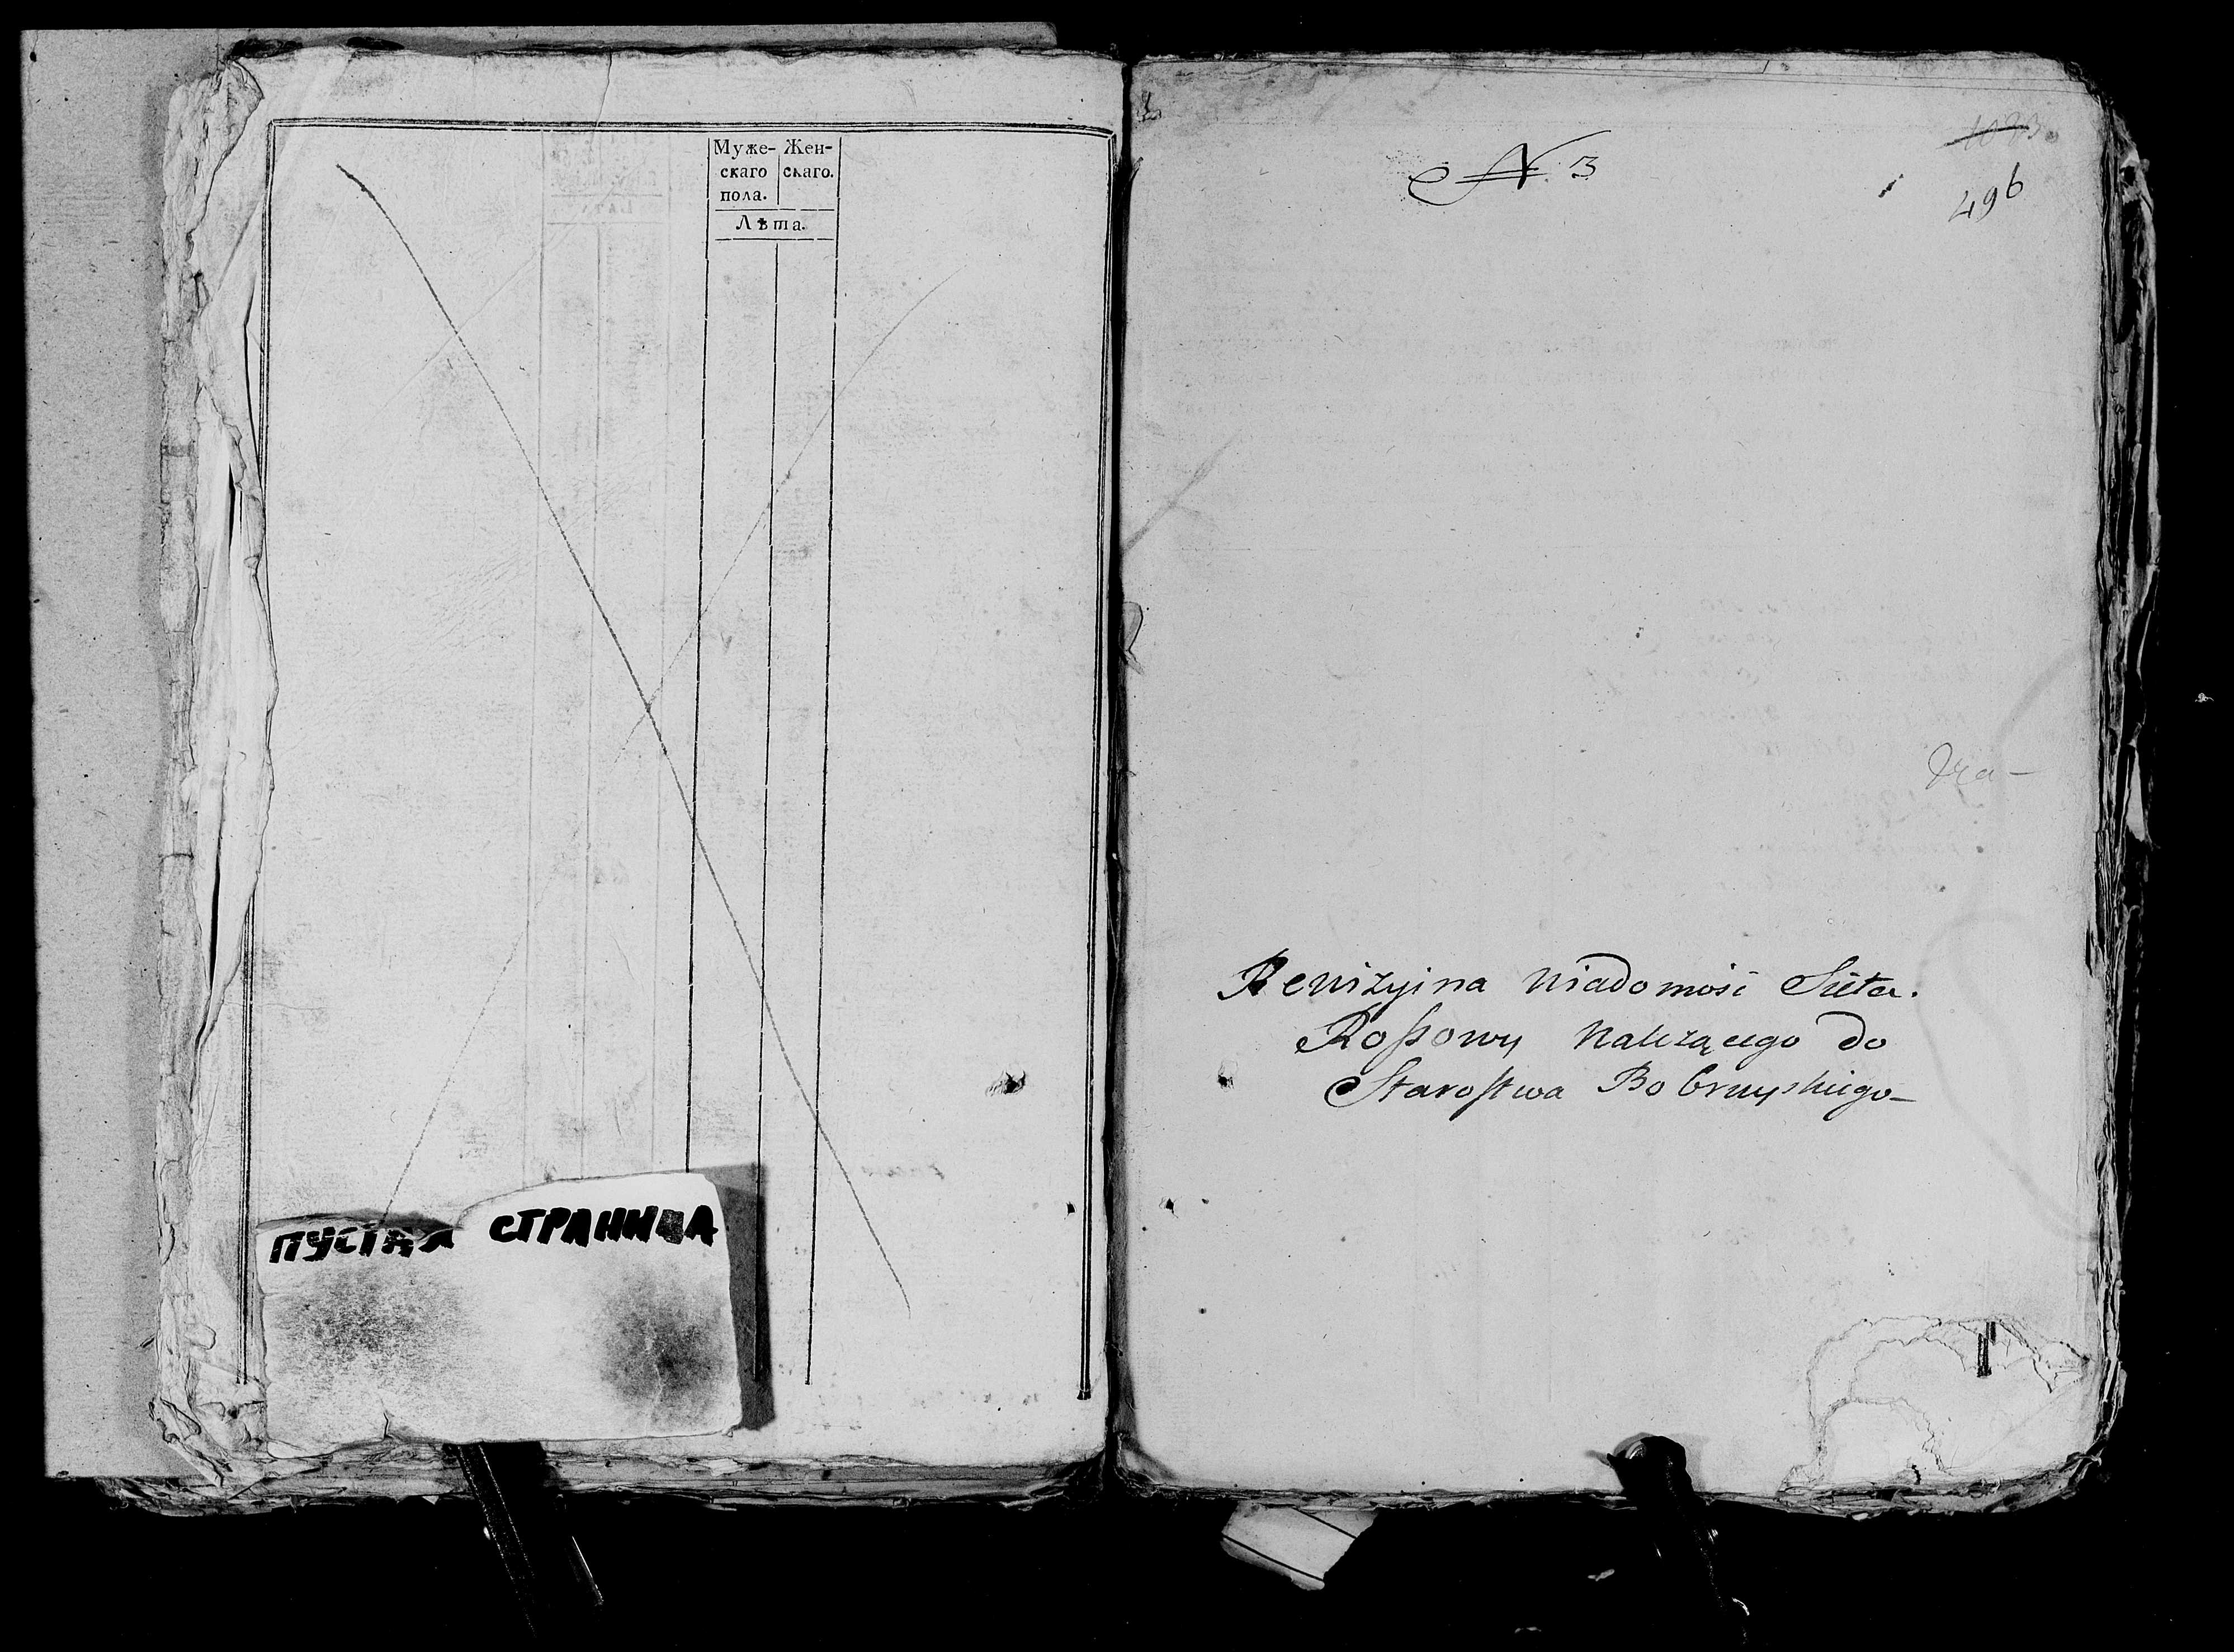 Муже- Жен-
скаго скаго.
пола.
Лѣта.
ПУСТАЯ СТРАНИЦА
N. 3
496
Rewizyina Wiadomość Sieła.
Roſsowy Należącego do
Staroſtwa Bobruyskiego